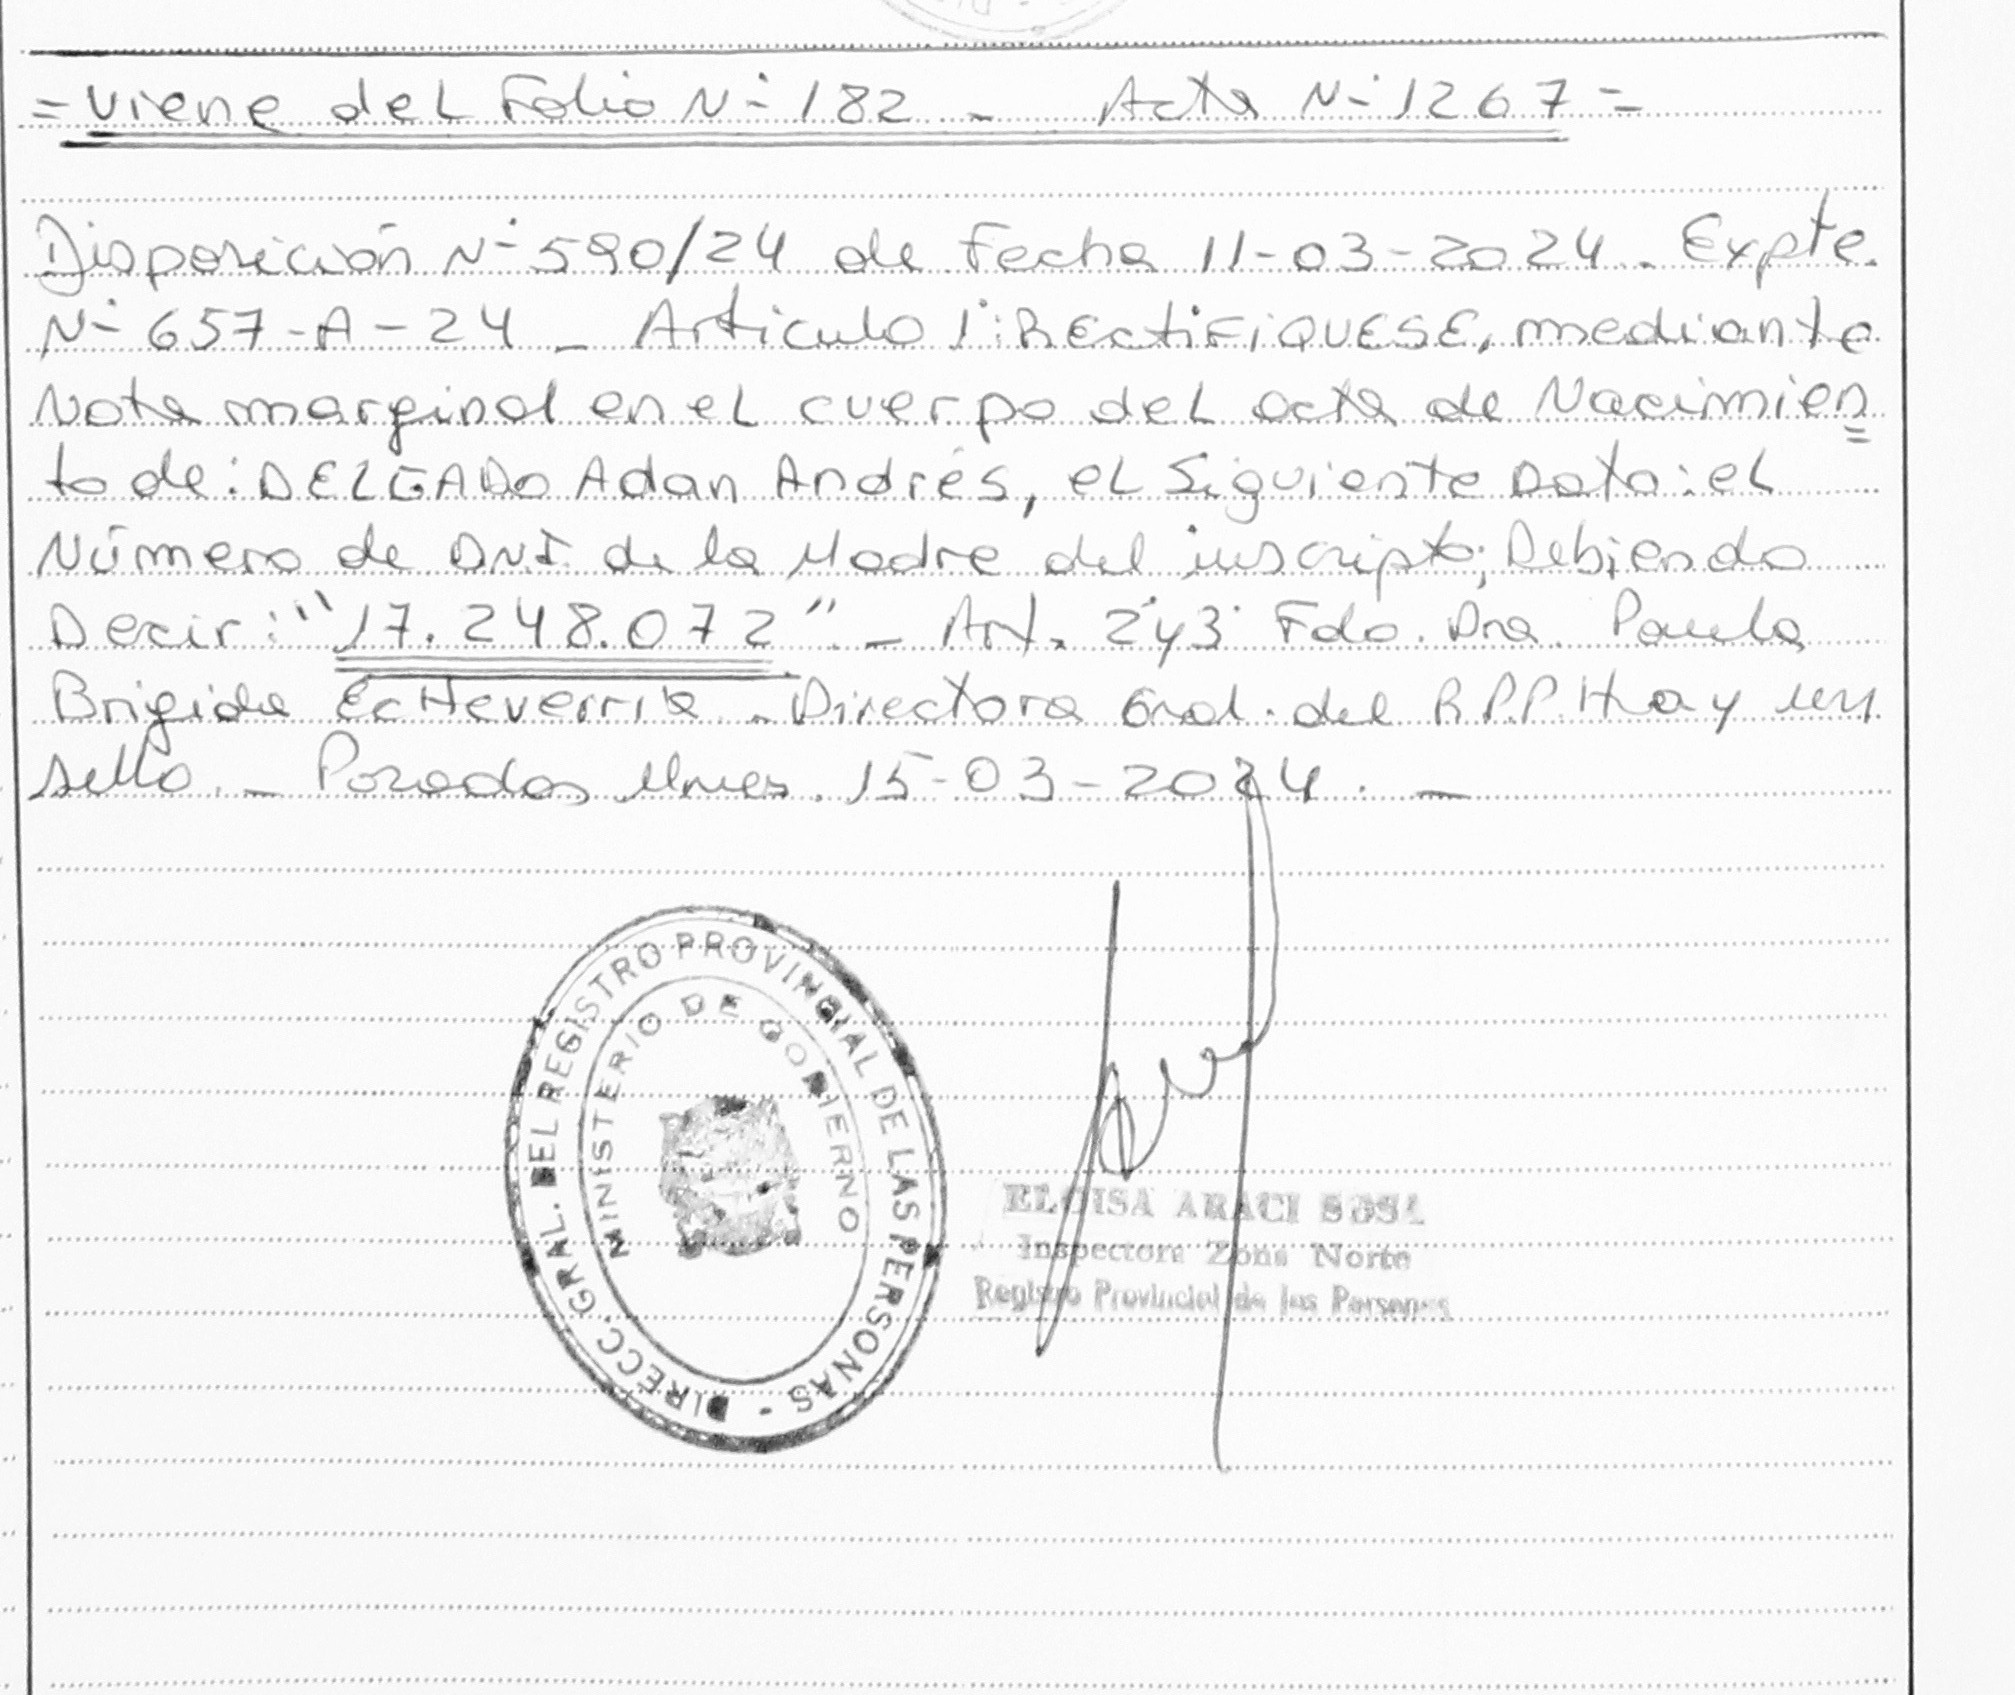 = Viene del Folio N° 182 - Acta N° 1267 =
Disposición N° 590/24 de Fecha 11-03-2024. Expte.
N° 657-A-24 _ Artículo 1°: RECtiFiQUESE, mediante
Nota marginal en el cuerpo del acta de Nacimien=
to de: DELGADO Adan Andrés, el Siguiente Dato: el
Número de DNI. de la Madre del inscripto; Debiendo
Decir: "17.248.072". _ Art. 2° y 3° Fdo. Dra. Paula
Brigida EcHeverria - Directora Gral. del R.P.P. Hay un
sello. _ Posadas Mnes. 15-03-2024. _
DIRECC. GRAL. DEL REGISTRO PROVINCIAL DE LAS PERSONAS -
MINISTERIO DE GOBIERNO
ELOISA ARACI SOSA
Inspectora Zona Norte
Registro Provincial de las Personas